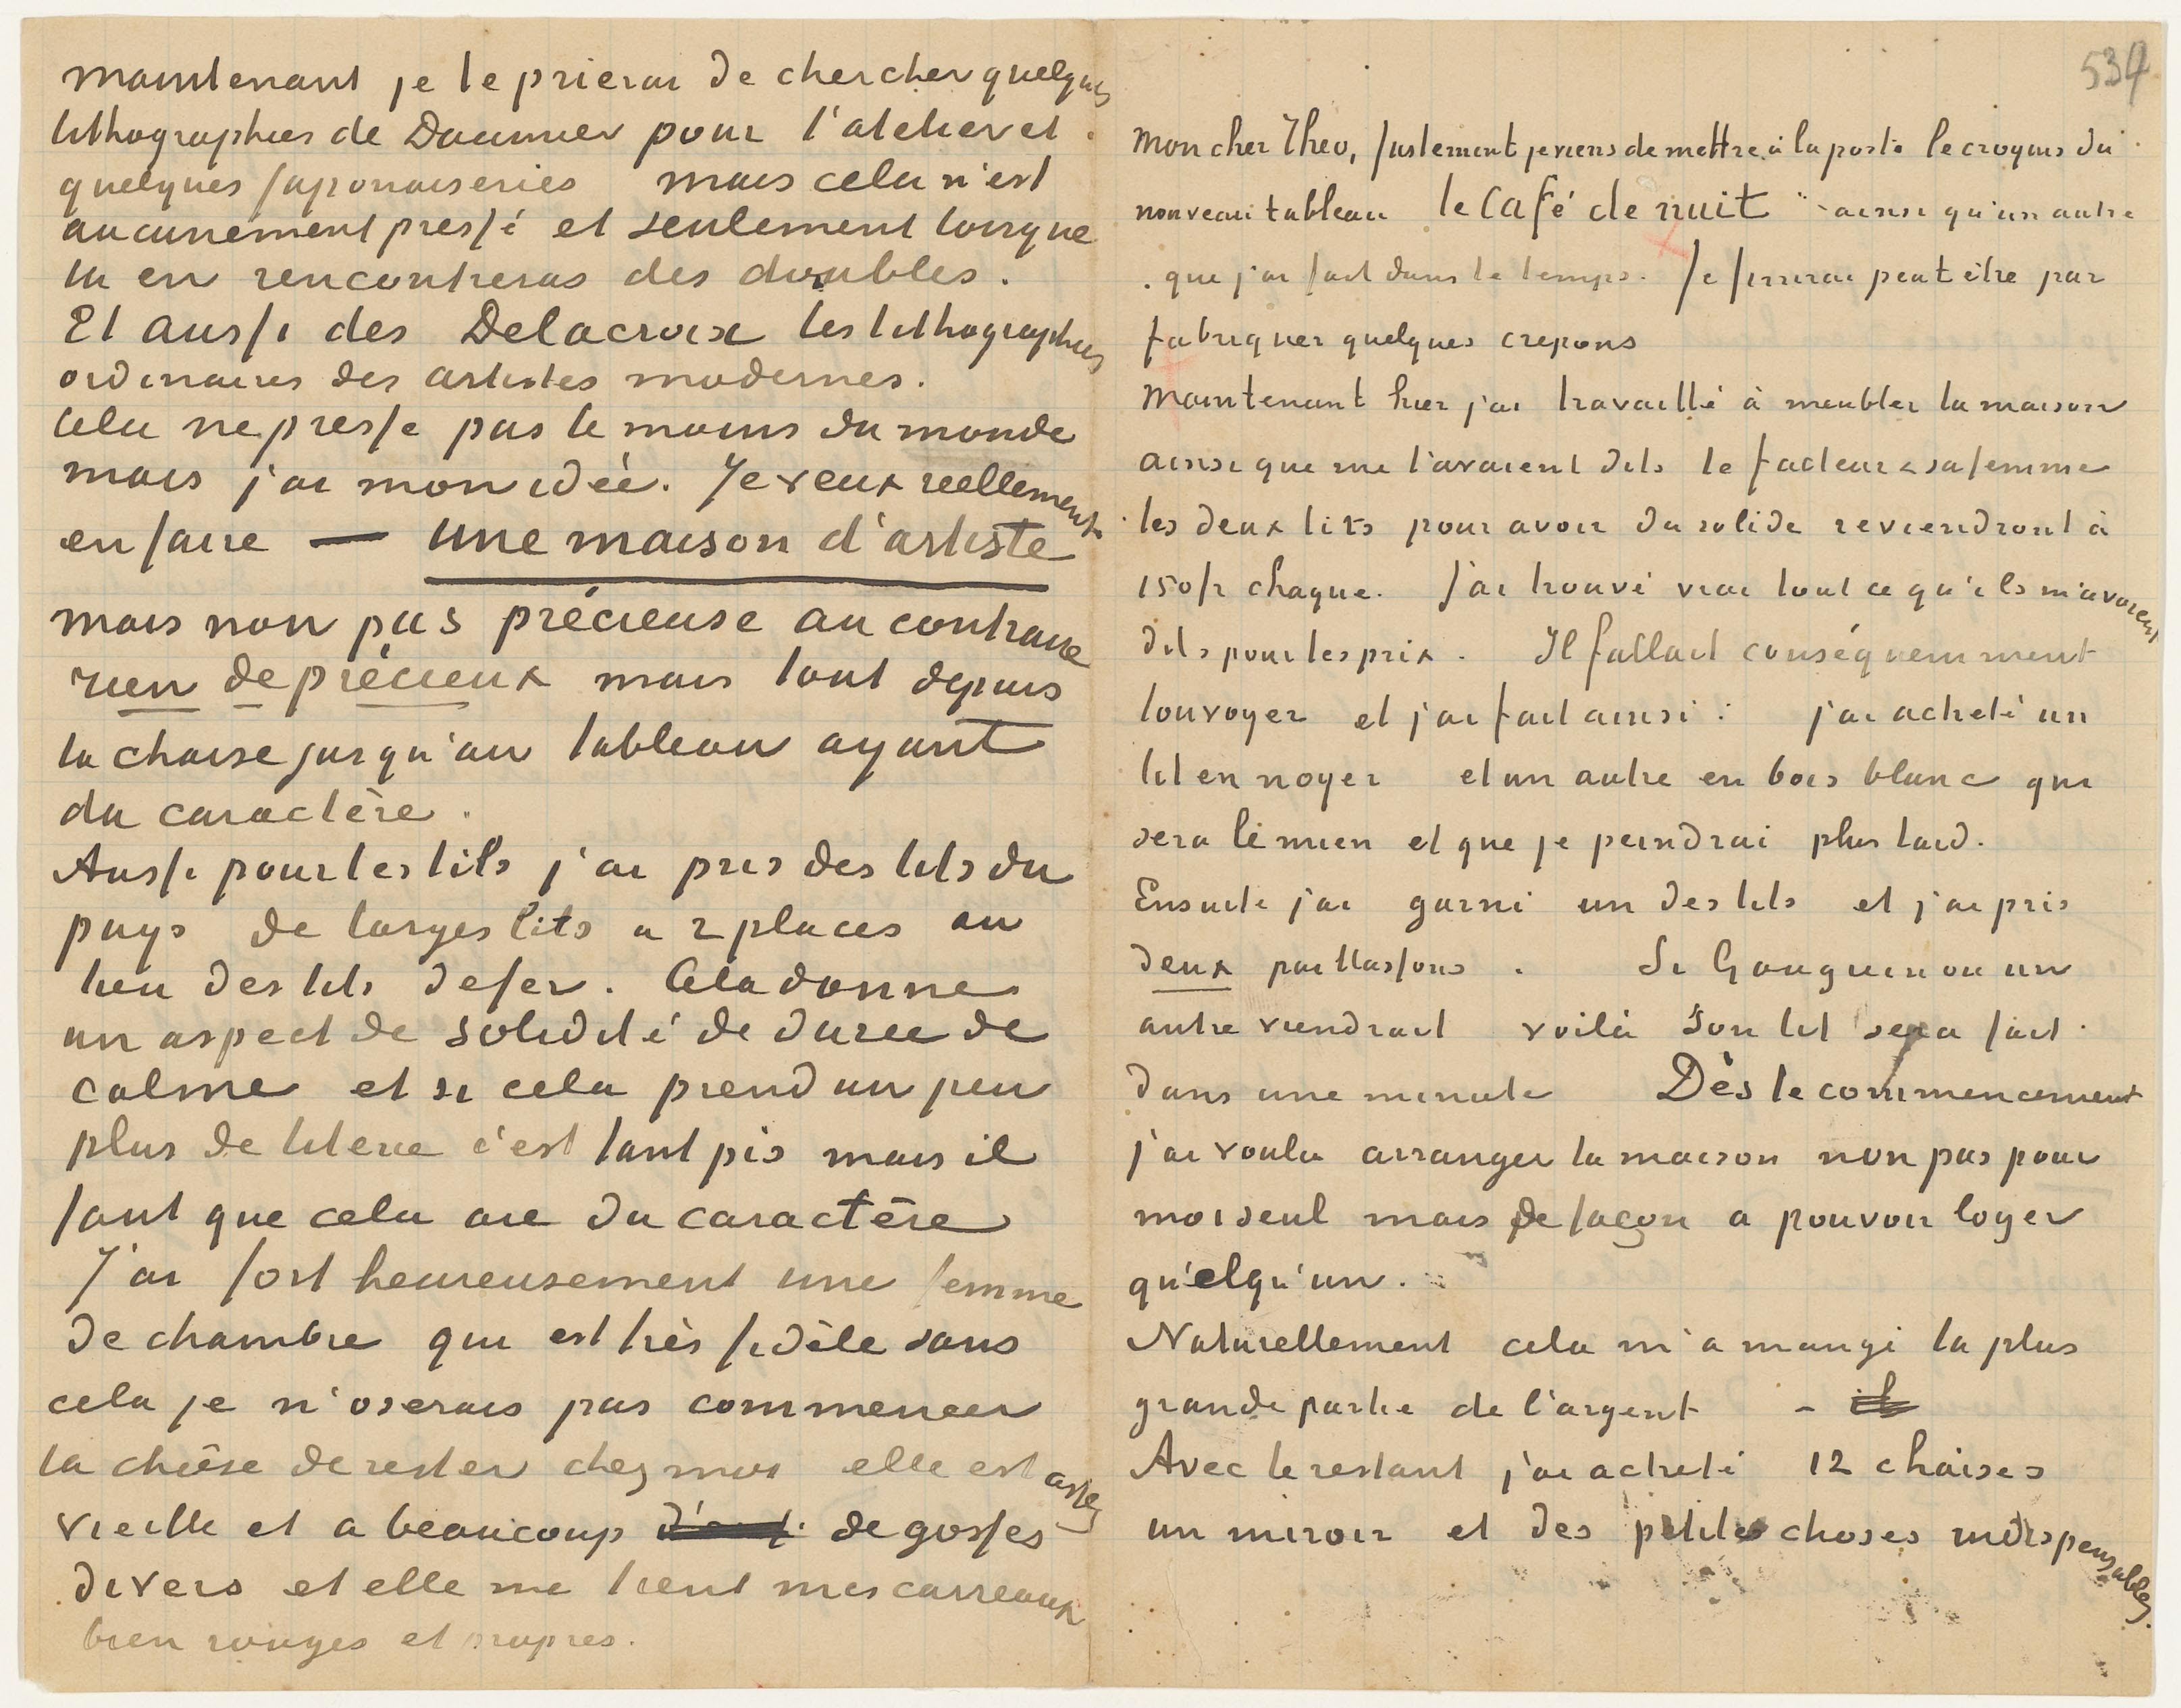 maintenant je te prierai de chercher quelques
lithographies de Daumier pour l'atelier et
quelques japonaiseries mais cela n'est
aucunement pressé et seulement lorsque
tu en rencontreras des doubles.
Et aussi des Delacroix les lithographies
ordinaires des artistes modernes.
Cela ne presse pas le moins du monde
mais j'ai mon idée. Je veux reellement
en faire — une maison d'artiste
mais non pas précieuse au contraire
rien de précieux mais tout depuis
la chaise jusqu'au tableau ayant
du caractère.
Aussi pour les lits j'ai pris des lits du
pays de larges lits a 2 places au
lieu des lits de fer. Cela donne
un aspect de solidité de duree de
calme et si cela prend un peu
plus de literie c'est tant pis mais il
faut que cela aie du caractère
J'ai fort heureusement une femme
de chambre qui est très fidèle sans
cela je n'oserais pas commencer
la chose de rester chez moi elle est assez
vieille et a beaucoup de gosses
divers et elle me tient mes carreaux
bien rouges et propres.
534
mon cher Theo, Justement je viens de mettre à la poste le croquis du
nouveau tableau le Café de nuit ainsi qu'un autre
que j'ai fait dans le temps. Je finirai peut être par
fabriquer quelques crepons
Maintenant hier j'ai travaillé à meubler la maison
ainsi que me l'avaient dits le facteur & sa femme
les deux lits pour avoir du solide reviendront à
150 fr chaque. J'ai trouvé vrai tout ce qu'ils m'avaient
dits pour les prix. Il fallait conséquemment
louvoyer et j'ai fait ainsi : j'ai acheté un
lit en noyer et un autre en bois blanc qui
sera le mien et que je peindrai plus tard.
Ensuite j'ai garni un des lits et j'ai pris
deux paillassons. Si Gauguin ou un
autre viendrait voilà son lit sera fait
dans une minute Dès le commencement
j'ai voulu arranger la maison non pas pour
moi seul mais de façon a pouvoir loger
qu'elqu'un.
Naturellement cela m'a mangé la plus
grande partie de l'argent -
Avec le restant j'ai acheté 12 chaises
un miroir et des petites choses indispensables.